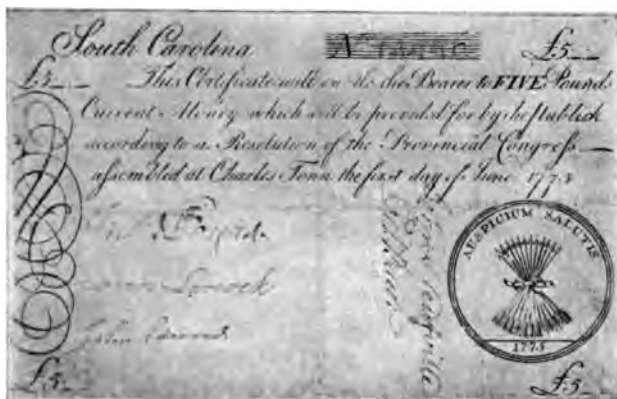 South Carolina £5
£5 This Certificate will entitle the Bearer to FIVE Pounds
Current Money which will be provided for by the Publick
according to a Resolution of the Provincial Congress
assembled at Charles Town the first day of June 1775
AUSPICIUM SALUTIS
John Edwards
1775
£5 £5